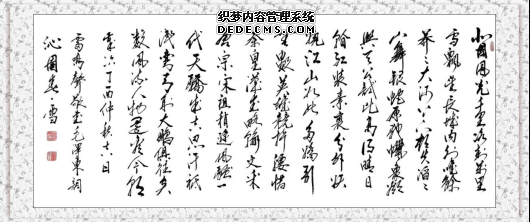 织梦内容管理系统
DEDECMS.COM
北國風光千里冰封万里
雪飘望长城内外惟馀
莽莽大河上下顿失滔滔
山舞银蛇原驰蜡象欲
與天公试比高须晴日
看红装素裹分外妖
娆江山如此多娇引
无数英雄竞折腰惜
秦皇汉武略输文采
唐宗宋祖稍逊风骚一
代天骄成吉思汗只
识弯弓射大雕俱往矣
数风流人物還看今朝
丁酉仲秋
毛泽东词
沁园春雪